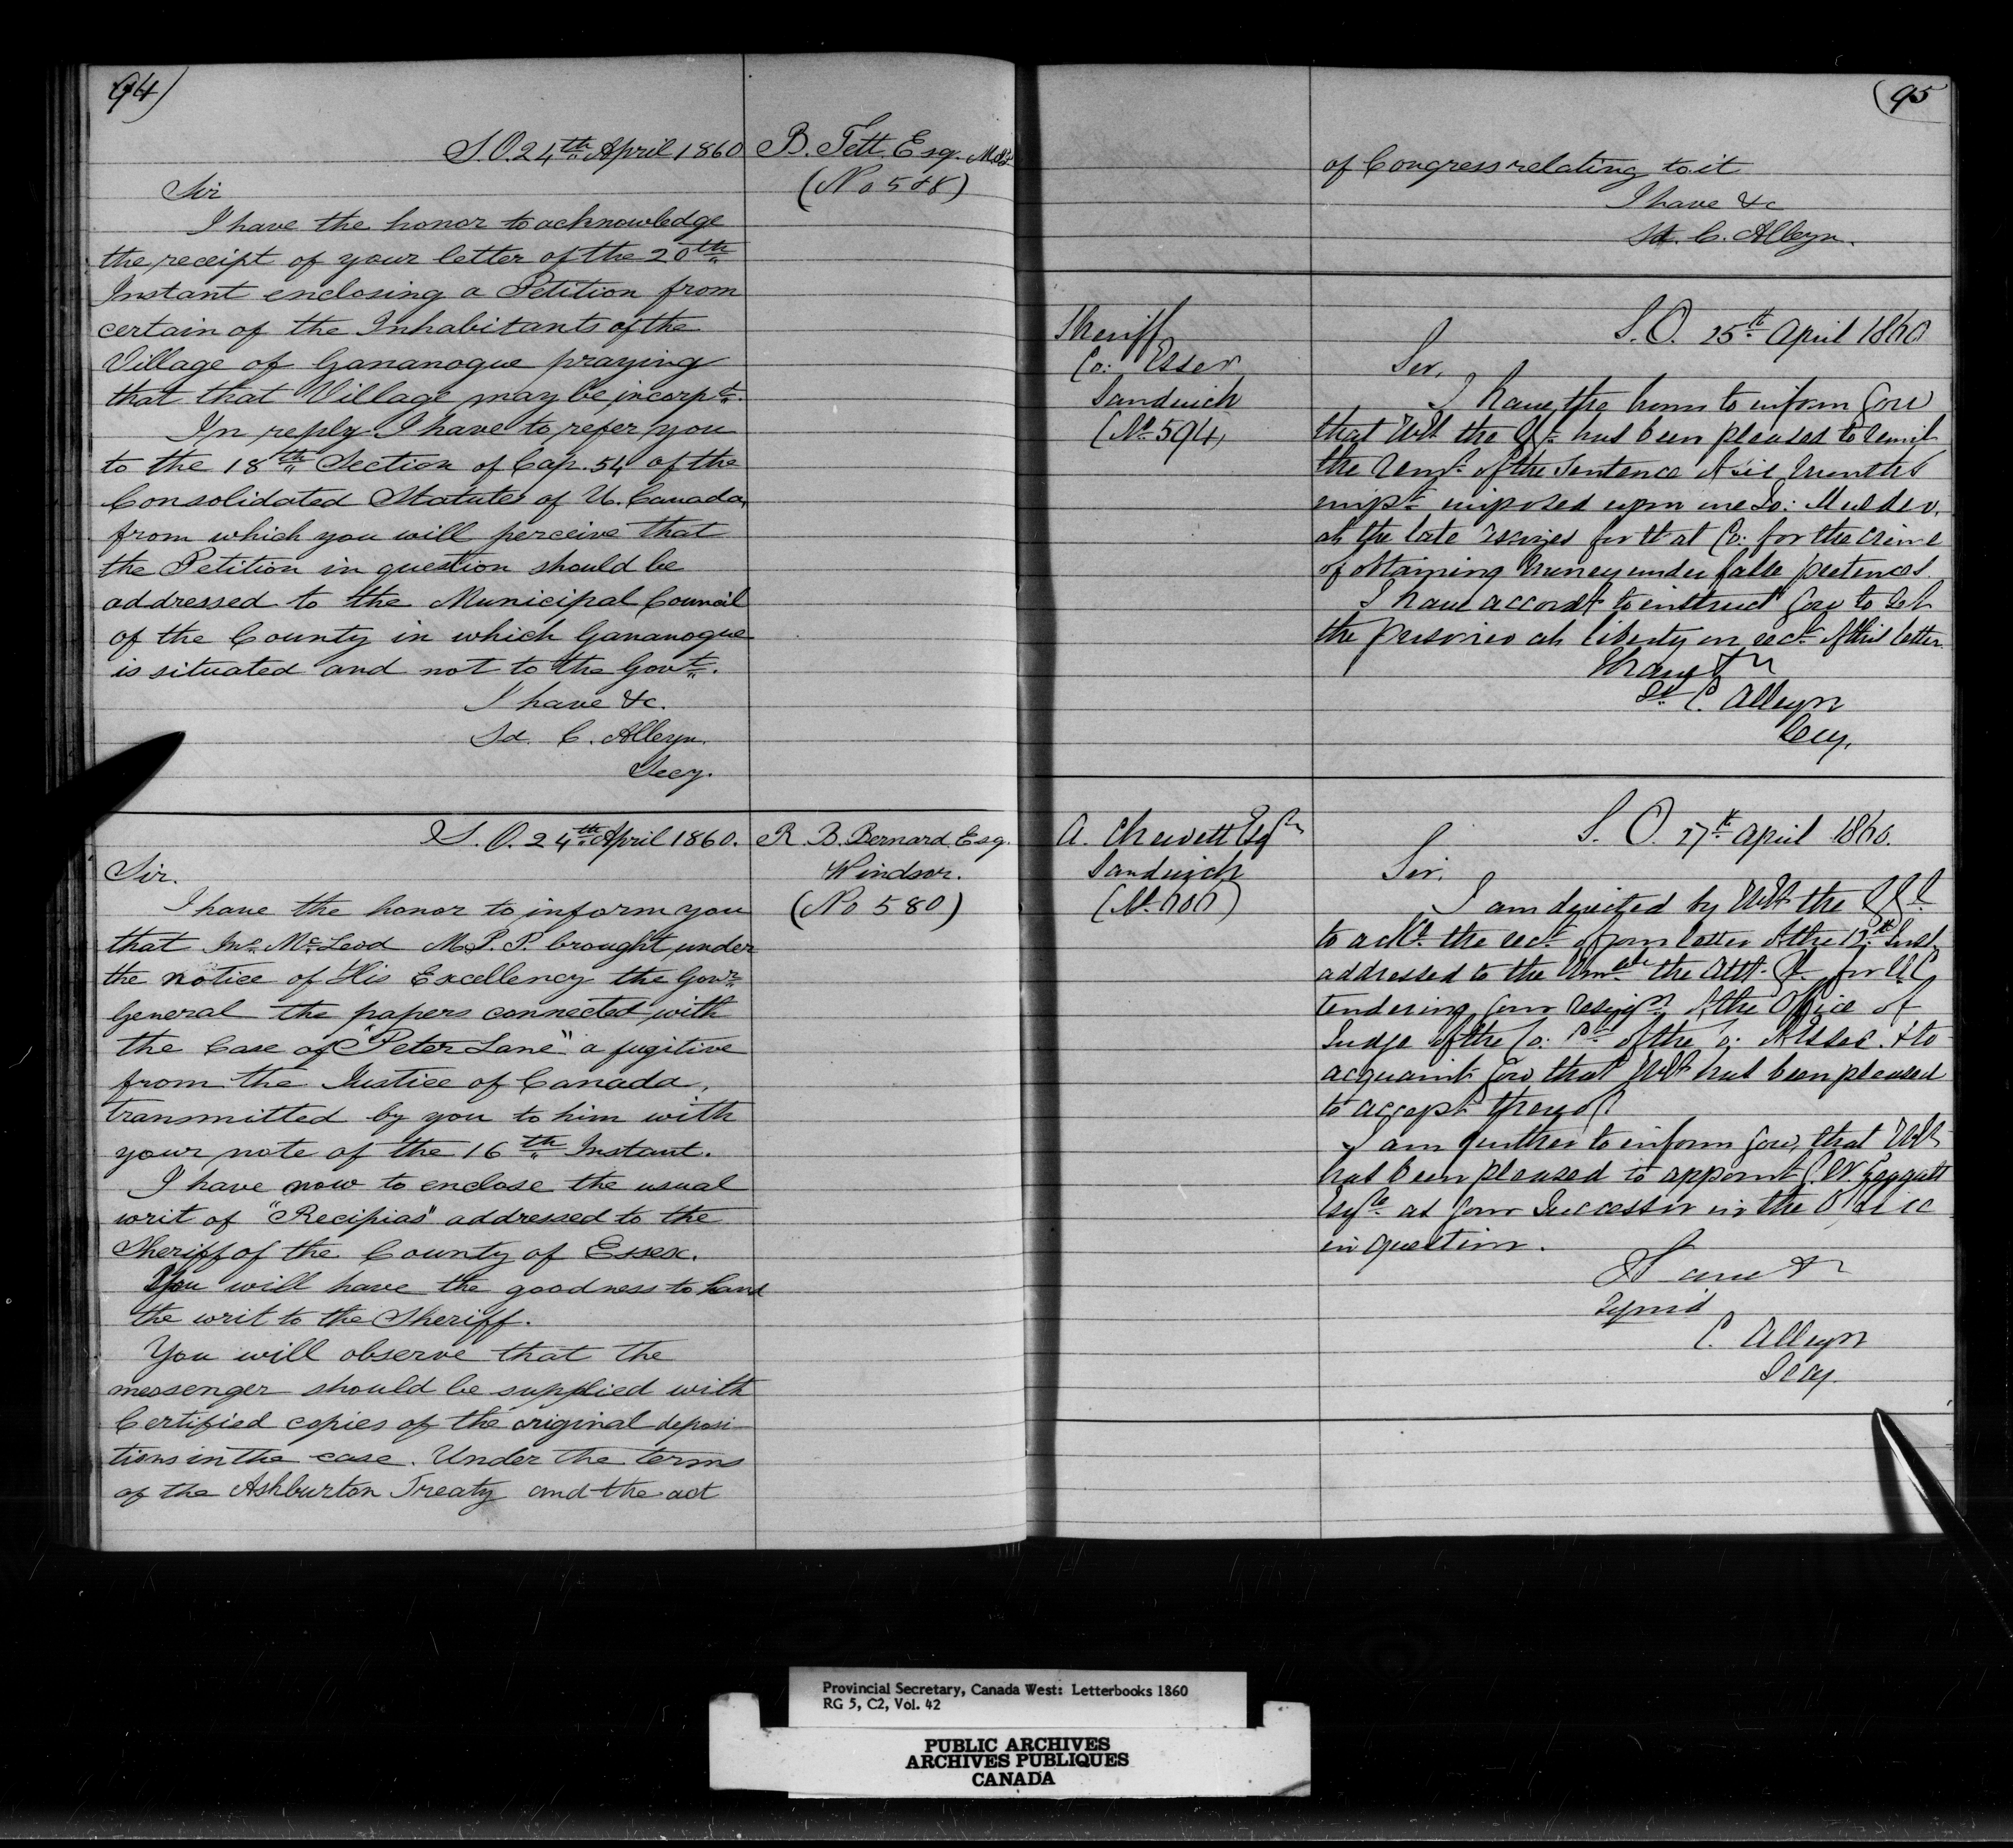 94)
S.O. 24th April 1860
B. Tett Esq. M.P.P.
(No 588)
Sir
I have the honor to acknowledge
the receipt of your letter of the 20th
Instant enclosing a Petition from
certain of the Inhabitants of the
Village of Gananoque praying
that that Village may be incorpd.
In reply I have to refer you
to the 18th Section of Cap. 54 of the
Consolidated Statutes of U. Canada,
from which you will perceive that
the Petition in question should be
addressed to the Municipal Council
of the County in which Gananoque
is situated and not to the Govt.
I have &c.
Sd. C. Alleyn.
Secy.
S.O. 24th April 1860.
R. B. Bernard Esq.
Windsor.
(No 580)
Sir.
I have the honor to inform you
that Mr McLeod M.P.P. brought under
the notice of His Excellency the Govr
General the papers connected with
the Case of "Peter Lane" a fugitive
from the Justice of Canada,
transmitted by you to him with
your note of the 16th Instant.
I have now to enclose the usual
writ of "Recipias" addressed to the
Sheriff of the County of Essex.
You will have the goodness to hand
the writ to the Sheriff.
You will observe that the
messenger should be supplied with
Certified copies of the original deposi
tions in the case. Under the terms
of the Ashburton Treaty and the act
(95
of Congress relating to it
I have &c
Sd. C. Alleyn.
Sheriff
Co: Essex
Sandwich
(No 594)
S.O. 25th April 1860
Sir,
I have the honor to inform you
that the has been pleased to remit
the remr of the Sentence of six months
impt imposed upon one
at the late assizes for that Co: for the crime
of obtaining money under false pretences.
I have accordt to instruct you to set
the prisoner at liberty on rect of this letter
I have &c
Sd C. Alleyn
Secy.
A. Chewett Esqr
Sandwich
(No 606)
S.O. 27th April 1860.
Sir,
I am directed by the
to ackt the rect of your letter of the Inst
addressed to the Honble the Atty. Gl. for U.C.
tendering your resign of the Office of
Judge of the Co: Ct of the Co: of Essex. & to
acquaint you that has been pleased
to accept thereof
I am further to inform you, that
has been pleased to appoint
Esqre as your Successor in the Office
in question.
I have &c
Signed
C. Alleyn
Secy.
Provincial Secretary, Canada West: Letterbooks 1860
RG 5, C2, Vol. 42
PUBLIC ARCHIVES
ARCHIVES PUBLIQUES
CANADA